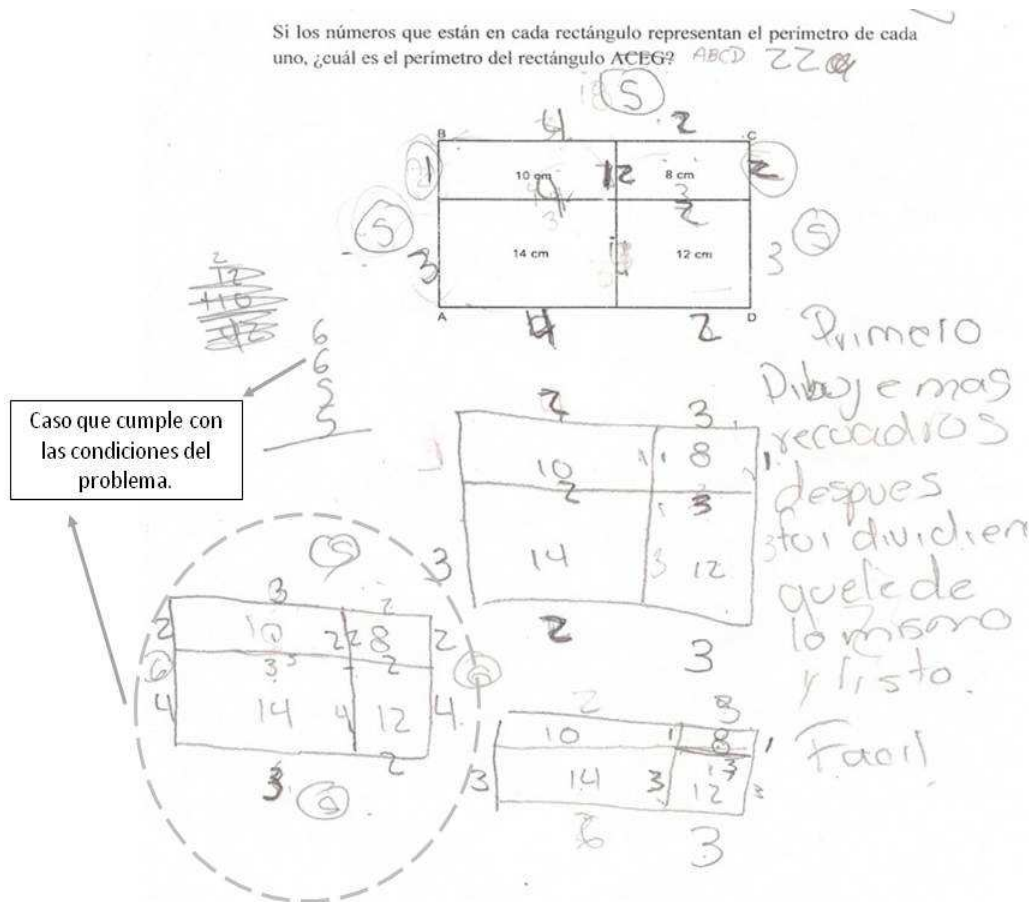 Si los números que están en cada rectángulo representan el perimetro de cada
uno, ¿cuál es el perímetro del rectángulo ACEG? ABCD 22
5
4 2
B C
1 10 cm 12 8 cm 2
2
5 14 cm 12 cm 3 5
3
A D
4 2
12
+10
6
6
5
5
Caso que cumple con
las condiciones del
problema.
Primero
Dibuje mas
recuadros
despues
fui dividien
quele de
lo mismo
y listo.
Facil
2 3
10 1 8 1
2 3
3 14 3 12 3
2 3
5
3 2
2 10 22 8 2
6 3 2 6
4 14 4 12 4
3 2
2 3
10 1 8 1
3 14 3 12 3
3